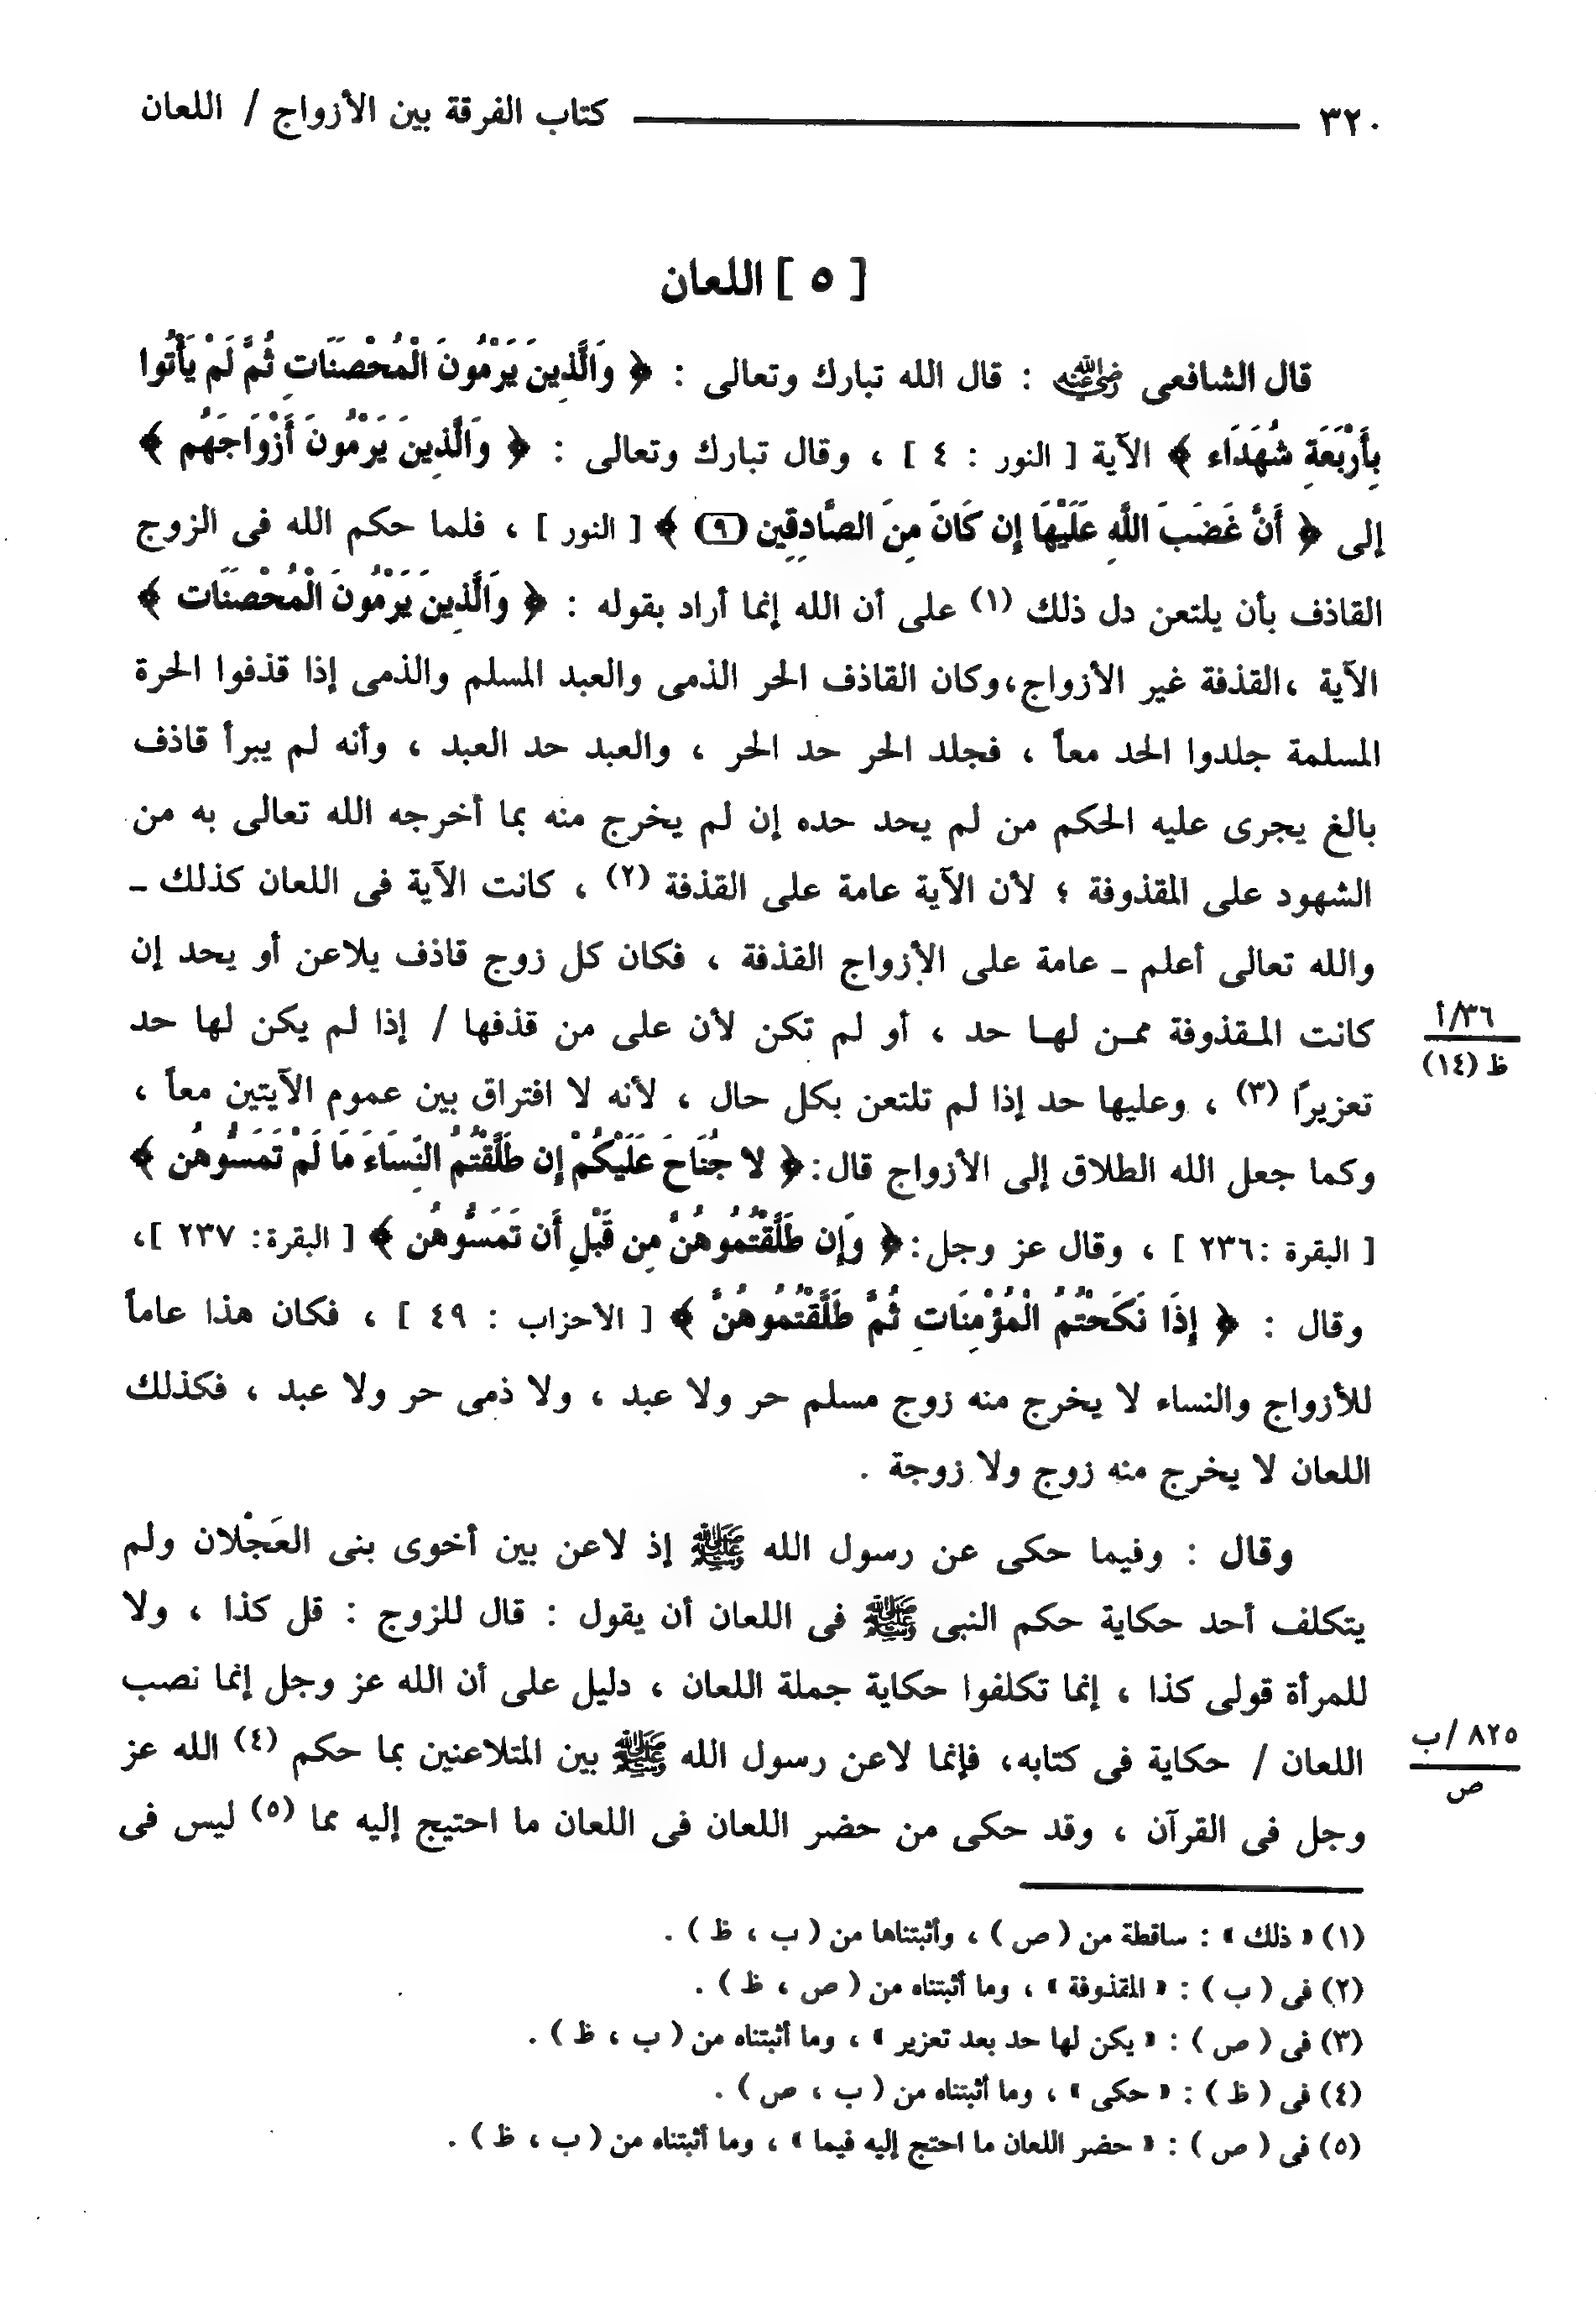 ٣٢٠ ــــــــــــــــــــ كتاب الفرقة بين الأزواج / اللعان
[ ٥ ] اللعان
قال الشافعى رضي الله عنه : قال الله تبارك وتعالى : ﴿ وَالَّذِينَ يَرْمُونَ الْمُحْصَنَاتِ ثُمَّ لَمْ يَأْتُوا
بِأَرْبَعَةِ شُهَدَاء ﴾ الآية [ النور : ٤ ] ، وقال تبارك وتعالى : ﴿ وَالَّذِينَ يَرْمُونَ أَزْوَاجَهُم ﴾
إلى ﴿ أَنَّ غَضَبَ اللَّهِ عَلَيْهَا إِن كَانَ مِنَ الصَّادِقِين (٩) ﴾ [ النور ] ، فلما حكم الله فى الزوج
القاذف بأن يلتعن دل ذلك (١) على أن الله إنما أراد بقوله : ﴿ وَالَّذِينَ يَرْمُونَ الْمُحْصَنَات ﴾
الآية ،القذفة غير الأزواج،وكان القاذف الحر الذمى والعبد المسلم والذمى إذا قذفوا الحرة
المسلمة جلدوا الحد معاً ، فجلد الحر حد الحر ، والعبد حد العبد ، وأنه لم يبرأ قاذف
بالغ يجرى عليه الحكم من لم يحد حده إن لم يخرج منه بما أخرجه الله تعالى به من
الشهود على المقذوفة ؛ لأن الآية عامة على القذفة (٢) ، كانت الآية فى اللعان كذلك ـ
والله تعالى أعلم ـ عامة على الأزواج القذفة ، فكان كل زوج قاذف يلاعن أو يحد إن
كانت المـقذوفة ممـن لهـا حد ، أو لم تكن لأن على من قذفها / إذا لم يكن لها حد
٣٦/أ
ظ (١٤)
تعزيرًا (٣) ، وعليها حد إذا لم تلتعن بكل حال ، لأنه لا افتراق بين عموم الآيتين معاً ،
وكما جعل الله الطلاق إلى الأزواج قال:﴿ لا جُنَاحَ عَلَيْكُمْ إِن طَلَّقْتُمُ النِّسَاءَ مَا لَمْ تَمَسُّوهُن ﴾
[ البقرة :٢٣٦ ] ، وقال عز وجل:﴿ وَإِن طَلَّقْتُمُوهُنَّ مِن قَبْلِ أَن تَمَسُّوهُن ﴾ [ البقرة: ٢٣٧ ]،
وقال : ﴿ إِذَا نَكَحْتُمُ الْمُؤْمِنَاتِ ثُمَّ طَلَّقْتُمُوهُنَّ ﴾ [ الأحزاب : ٤٩ ] ، فكان هذا عاماً
للأزواج والنساء لا يخرج منه زوج مسلم حر ولا عبد ، ولا ذمى حر ولا عبد ، فكذلك
اللعان لا يخرج منه زوج ولا زوجة .
وقال : وفيما حكى عن رسول الله ﷺ إذ لاعن بين أخوى بنى العَجْلان ولم
يتكلف أحد حكاية حكم النبى ﷺ فى اللعان أن يقول : قال للزوج : قل كذا ، ولا
للمرأة قولى كذا ، إنما تكلفوا حكاية جملة اللعان ، دليل على أن الله عز وجل إنما نصب
اللعان / حكاية فى كتابه، فإنما لاعن رسول الله ﷺ بين المتلاعنين بما حكم (٤) الله عز
٨٢٥ /ب
ص
وجل فى القرآن ، وقد حكى من حضر اللعان فى اللعان ما احتيج إليه مما (٥) ليس فى
(١) « ذلك » : ساقطة من ( ص ) ، وأثبتناها من ( ب ، ظ ) .
(٢) فى ( ب ) : « المقذوفة » ، وما أثبتناه من ( ص ، ظ ) .
(٣) فى ( ص ) : « يكن لها حد بعد تعزير » ، وما أثبتناه من ( ب ، ظ ) .
(٤) فى ( ظ ) : « حكى » ، وما أثبتناه من ( ب ، ص ) .
(٥) فى ( ص ) : « حضر اللعان ما احتج إليه فيما » ، وما أثبتناه من ( ب ، ظ ) .